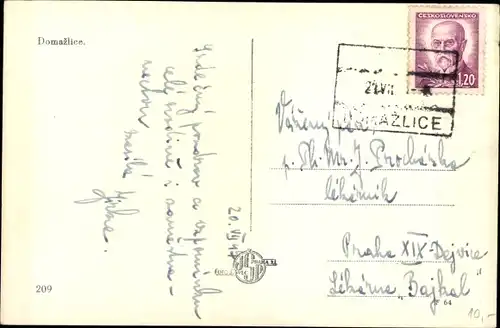 Domažlice.
Srdečný pozdrav a vzpomínku
celý rodině i zaměstna-
nectvu
zasílá
20. VII 47
209
ČESKOSLOVENSKO
1.20
2 VII
DOMAŽLICE
Vážený pan
p. Ph. Mr. J. Procházka
lékárník
Praha XIX-Dejvice
Lékárna „Bajkal"
64
10,-